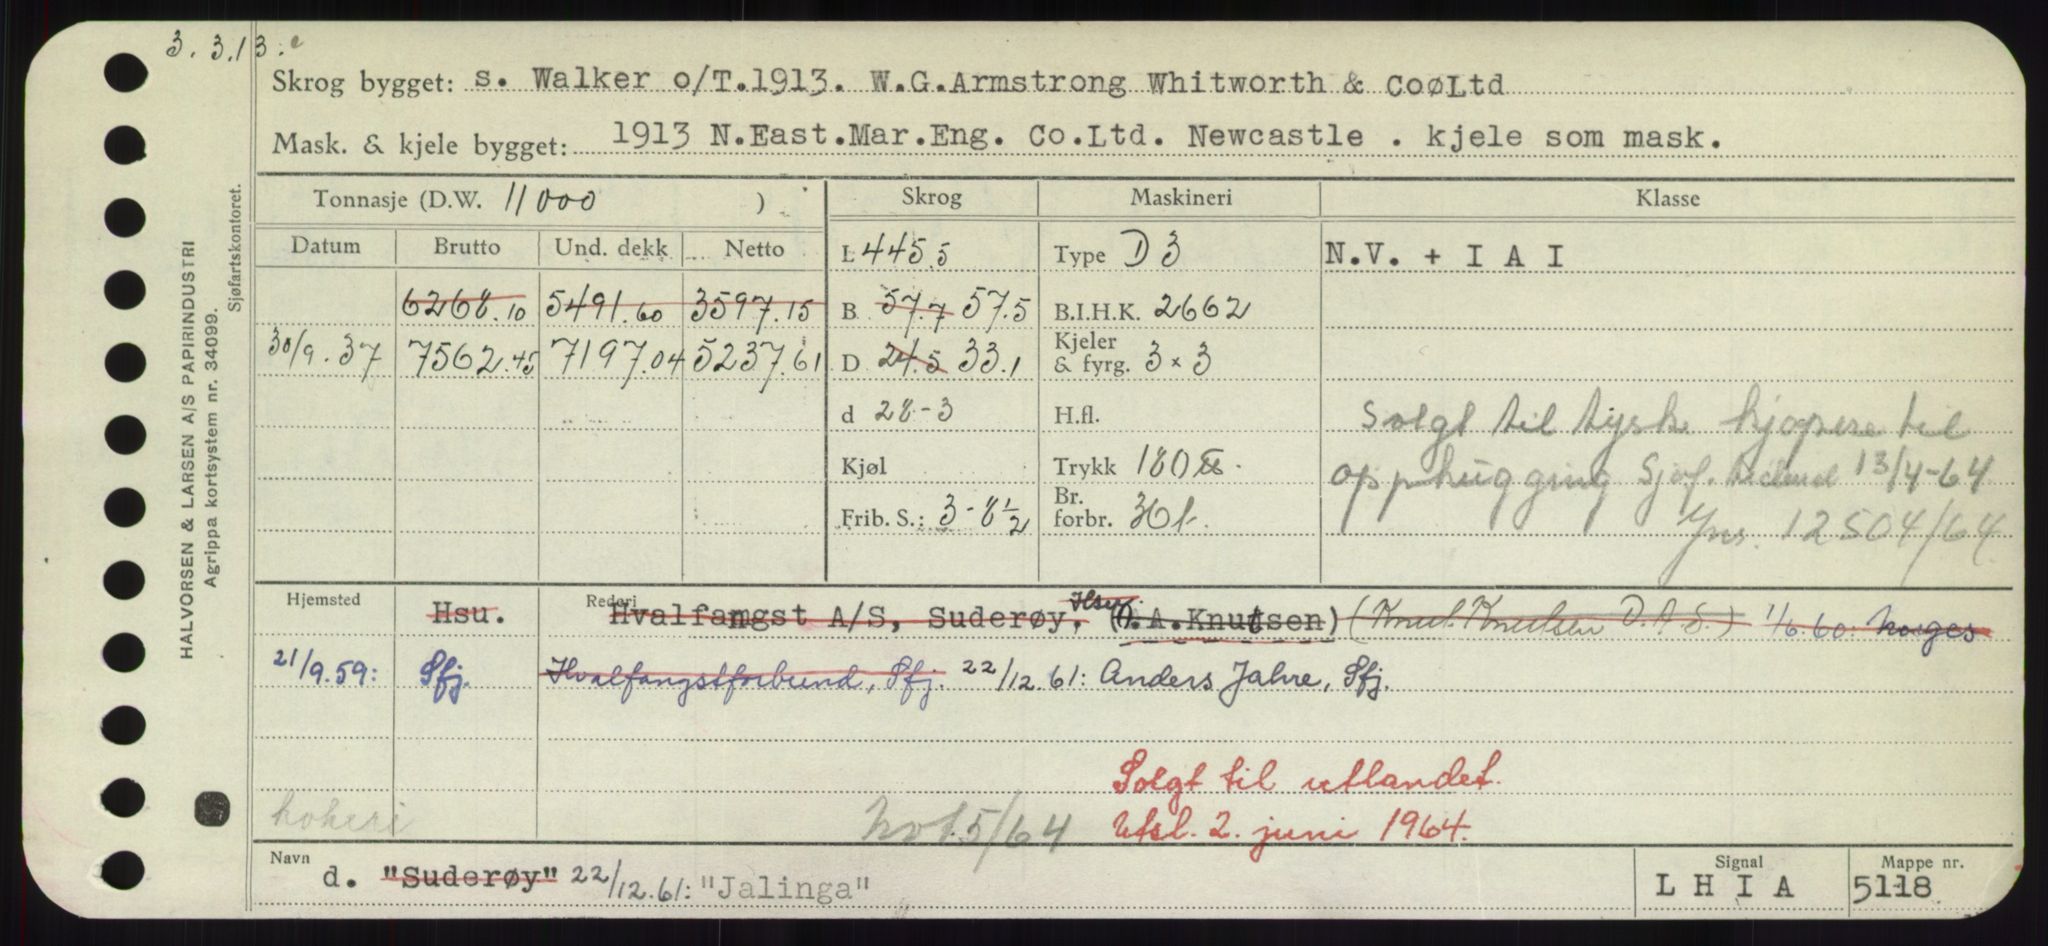 3. 3.13.
Skrog bygget: s. Walker o/T.1913. W.G.Armstrong Whitworth & CoøLtd
Mask. & kjele bygget: 1913 N.East.Mar.Eng. Co.Ltd. Newcastle . kjele som mask.
Tonnasje (D.W. 11000 ) Skrog Maskineri Klasse
Datum Brutto Und. dekk Netto L 445.5 Type D 3 N.V. + I A I
6268.10 5491.60 3597.15 B 57.7 57.5 B.I.H.K. 2662
30/9.37 7562.45 7197.04 5237.61 D 24.5 33.1 Kjeler & fyrg. 3 x 3
d 28-3 H.fl. Solgt til tyske kjøpere til
Kjøl Trykk 180 opphugging Sjøf. 13/4-64
Frib. S.: 3-8½ Br. forbr. 36 t. Jnr. 12504/64
Hjemsted Hsu. Rederi Hvalfangst A/S, Suderøy, Hsu. (D.A.Knutsen) (Knut Knutsen O.A.S.) 1/6.60: Norges
21/9.59: Sfj. Hvalfangstforbund, Sfj. 22/12.61: Anders Jahre, Sfj.
Solgt til utlandet.
kokeri not.5/64 Utsl. 2. juni 1964.
Navn d. "Suderøy" 22/12.61: "Jalinga" Signal L H I A Mappe nr. 5118
HALVORSEN & LARSEN A/S PAPIRINDUSTRI
Agrippa kortsystem nr. 34099.
Sjøfartskontoret.